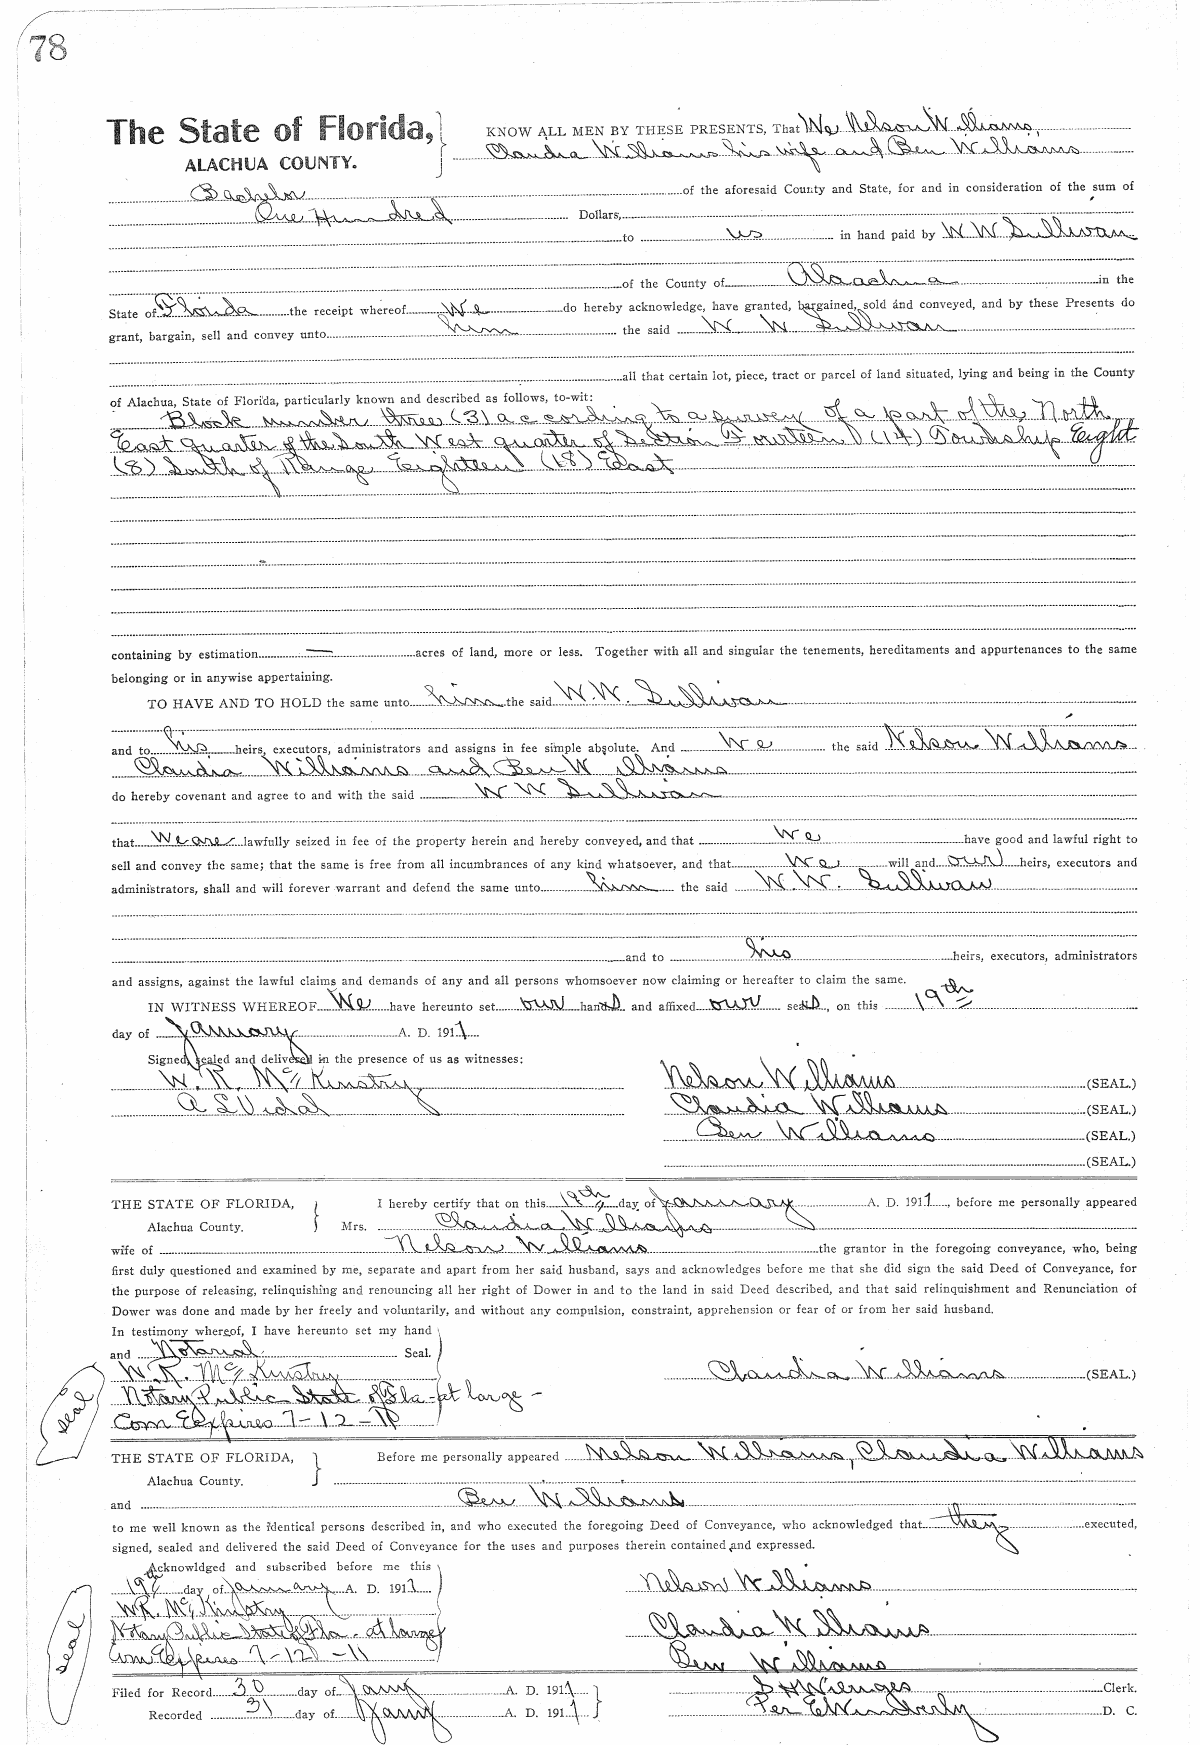 78
The State of Florida, KNOW ALL MEN BY THESE PRESENTS, That We Nelson Williams,
ALACHUA COUNTY. Claudia Williams his wife and Ben Williams
Bachelor of the aforesaid County and State, for and in consideration of the sum of
One Hundred Dollars,
to us in hand paid by W W Sullivan
of the County of Alachua in the
State of Florida the receipt whereof We do hereby acknowledge, have granted, bargained, sold and conveyed, and by these Presents do
grant, bargain, sell and convey unto him the said W W Sullivan
all that certain lot, piece, tract or parcel of land situated, lying and being in the County
of Alachua, State of Florida, particularly known and described as follows, to-wit:
Block number three (3) according to a survey of a part of the North
East quarter of the South West quarter of Section Fourteen (14) Township Eight
(8) South of Range Eighteen (18) East
containing by estimation — acres of land, more or less. Together with all and singular the tenements, hereditaments and appurtenances to the same
belonging or in anywise appertaining.
TO HAVE AND TO HOLD the same unto him the said W.W. Sullivan
and to his heirs, executors, administrators and assigns in fee simple absolute. And We the said Nelson Williams
Claudia Williams and Ben Williams
do hereby covenant and agree to and with the said W W Sullivan
that We are lawfully seized in fee of the property herein and hereby conveyed, and that We have good and lawful right to
sell and convey the same; that the same is free from all incumbrances of any kind whatsoever, and that We will and our heirs, executors and
administrators, shall and will forever warrant and defend the same unto him the said W.W. Sullivan
and to his heirs, executors, administrators
and assigns, against the lawful claims and demands of any and all persons whomsoever now claiming or hereafter to claim the same.
IN WITNESS WHEREOF We have hereunto set our hands and affixed our seals, on this 19th
day of January A. D. 1911
Signed, sealed and delivered in the presence of us as witnesses:
W. R. McKinstry Nelson Williams (SEAL.)
A L Vidal Claudia Williams (SEAL.)
Ben Williams (SEAL.)
(SEAL.)
THE STATE OF FLORIDA, I hereby certify that on this 19th day of January A. D. 1911, before me personally appeared
Alachua County. Mrs. Claudia Williams
wife of Nelson Williams the grantor in the foregoing conveyance, who, being
first duly questioned and examined by me, separate and apart from her said husband, says and acknowledges before me that she did sign the said Deed of Conveyance, for
the purpose of releasing, relinquishing and renouncing all her right of Dower in and to the land in said Deed described, and that said relinquishment and Renunciation of
Dower was done and made by her freely and voluntarily, and without any compulsion, constraint, apprehension or fear of or from her said husband.
In testimony whereof, I have hereunto set my hand
and Notarial Seal.
W. R. McKinstry Claudia Williams (SEAL)
Notary Public State of Fla - at large -
seal
Com Expires 7-12-
THE STATE OF FLORIDA, Before me personally appeared Nelson Williams, Claudia Williams
Alachua County.
and Ben Williams
to me well known as the identical persons described in, and who executed the foregoing Deed of Conveyance, who acknowledged that they executed,
signed, sealed and delivered the said Deed of Conveyance for the uses and purposes therein contained and expressed.
Acknowldged and subscribed before me this
19th day of January A. D. 1911 Nelson Williams
W.R. McKinstry
Notary Public State of Fla - at large Claudia Williams
seal
Com Expires 7-12-11 Ben Williams
Filed for Record 30 day of Jany A. D. 1911 S H Wienges Clerk.
Recorded 31 day of Jany A. D. 1911 Per E Wimberly D. C.